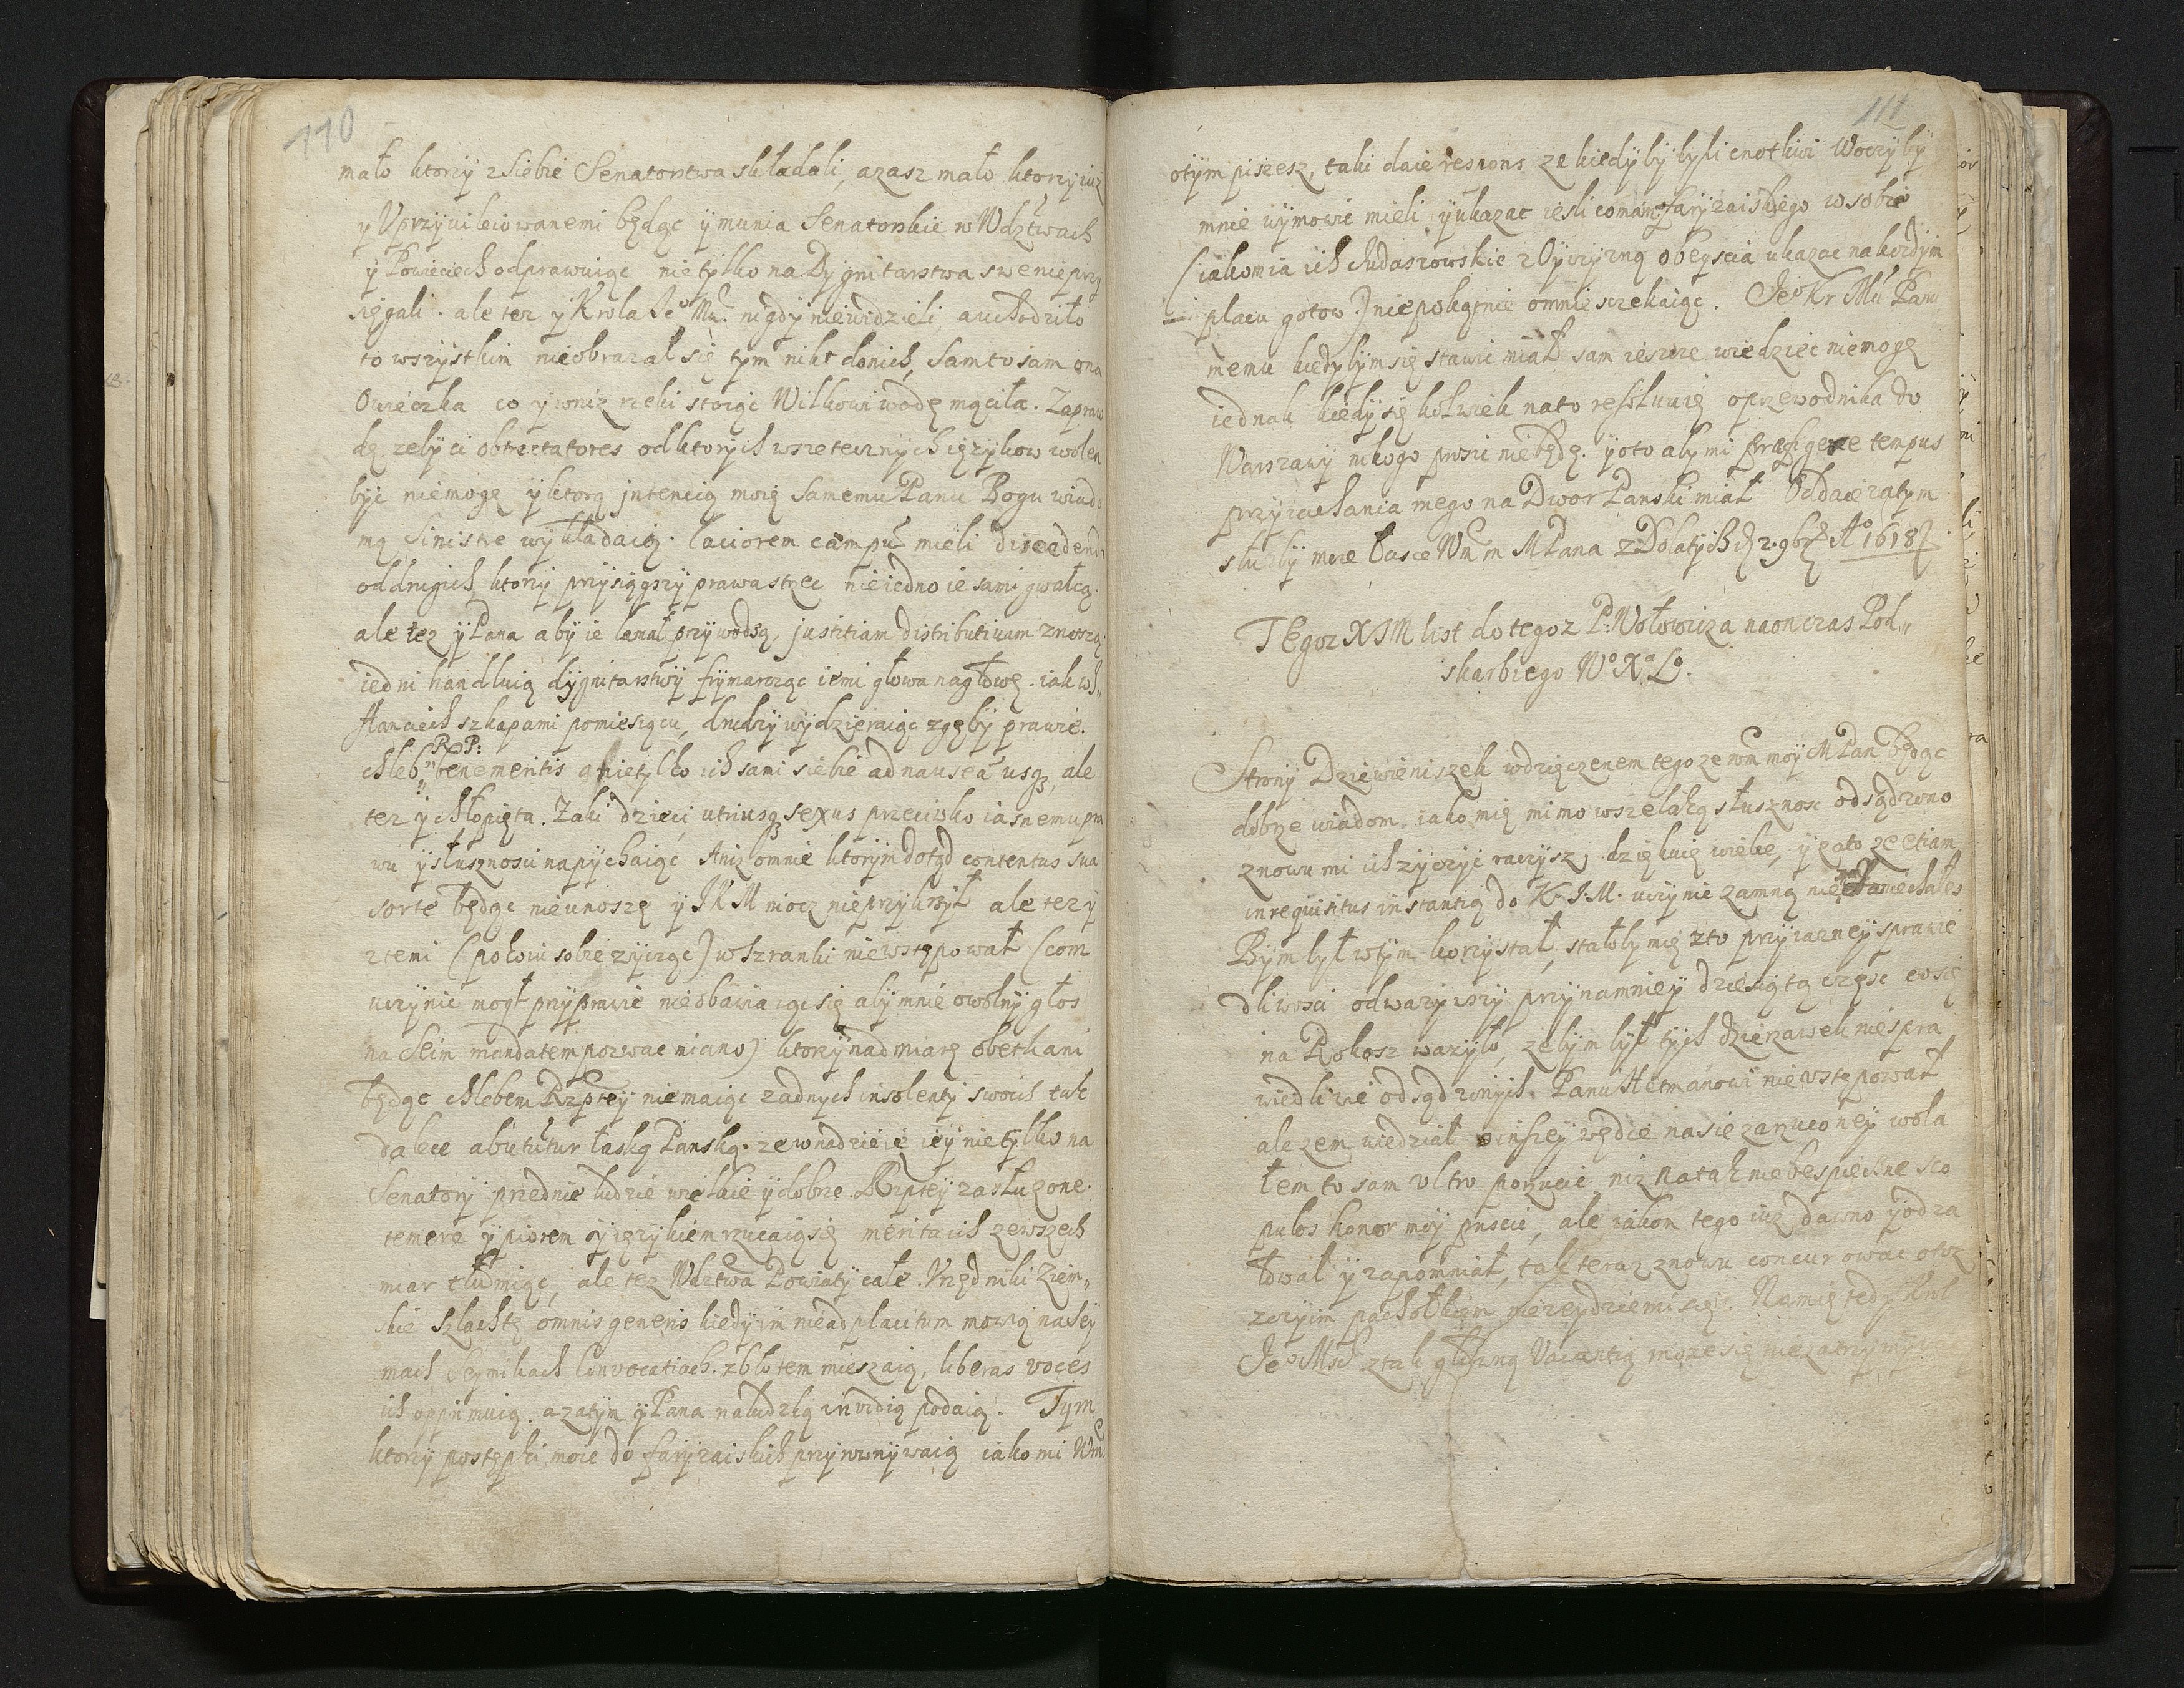 110
mało ktorzy z siebie Senatorstwa składali, azasz mało ktorzy iuz
y Vprzywileiowanemi będąc y munia Senatorskie w Wdztwach
y Powieciech odprawuiąc nie tylko na Dygnitarstwa swe nie przy
sięgali. ale tez y Krola Jeo Mći. nigdy niewidzieli, a uchodziło
to wszystkim nieobrazał się tym nikt do nich, Sam to iam ona
Owieczka co y wniz rzeki stoiąc Wilkowi wodę mąciła. Zapraw
dę zeby ci obtrectatores od ktorych wszetecznych ięzykow wolen
być niemogę y ktorą intencią moię Samemu Panu Bogu wiado
mą Sinistre wykładaią. laciorem campū mieli discedendi
od drugich, ktorzy przysiągszy prawa strzec nie iedno ie sami gwałcą
ale tez y Pana aby ie łamał przywodzą, justitiam distributivam znoszą
iedni handluią dygnitarstwy frymarcząc iemi głowa na głowę. iak w
Hanciech szkapami pomiesiącu, drudzy wydzieraiąc z gęby prawie.
chleb R.P: benemeritis a nietylko ich sami siebie ad nauseā usq3, ale
tez y chłopięta. Zaki dzieci utriusq3 sexus przeciwko iasnemu pra
wu y słusznosci napychaiąc Aniz o mnie ktorym dotąd contentus sua
sorte będąc nieunoszę y JKM niocz nieprzykrzył ale tez y
z temi (pokoiu sobie zycząc) w Szranki niewstępował (com
uczynic mogł przyprawie nieobawiaiąc się aby mnie o wolny głos
na Seim mandatem pozwac miano) ktorzy nad miarę obetkani
będąc chlebem Rzptey niemaiąc zadnych insolentÿ swoich tak
dalece abutūtur łaską Panską. ze w nadzieie iey nie tylko na
Senatory przednie ludzie wielkie y dobrze Rzptey zasłuzone.
temere y piorem y ięzykiem rzucaią się merita ich ze wszech
miar tłumiąc, ale tez Wdztwa Powiaty całe. Vrzędniki Ziem„
skie Szlachtę omnis generis kiedy im nie ad placitum mowią na Sey
mach Seymikach Convocatiach. z błotem mieszaią, liberas voces
ich opprimuią. a zatym y Pana na ludzką invidią podaią. Tym
ktorzy postępki moie do faryzaiskich przyrownywaią iako mi Wm
111
o tym piszesz, taki daie respons ze kiedyby byli cnotliwi W oczy by
mnie wymowic mieli y ukazac iesli co mam faryzaiskiego w sobie
(iako mia ich Judaszowskie z Oyczyzną obeyscia ukazac na kozdym
placu gotow) niepokątnie o mnie szczekaiąc. Jeo Kr Mći Panu
memu kiedybym się stawic miał sam ieszcze wiedziec niemogę
iednak kiedy się kolwiek na to resoluuię o przewodnika do
Warszawy nikogo prosic niebędę. y o to aby mi praefigere tempus
przyiachania mego na Dwor Panski miał Oddaię zatym
słuzby moie łasce Wm m MPana z Dolatycz d. 2. 9br Ao 1618
TEgoz XJM list do tegoz P. Wołowicza na on czas Pod„
skarbiego Wo Xa Lo.
Strony Dziewieniszek wdzięczenem tego ze wm moy M Pan będąc
dobrze wiadom. iako mię mimo wszelaką słusznosc odsądzono
znowu mi ich zyczyć raczysz, dziękuię wielce, y za to ze etiam
inrequisitus instantią do K.J.M. uczynic zamną nie zaniechałes
Bym był w tym korzystał, stałoby mię z to przyiazney sprawie
dliwosci odwazywszy przynamniey dziesiątą częsc co się
na Rokosz wazyło, zebym był tych dzierzawek niespra
wiedliwie odsądzonych. Panu Hetmanowi niewstępował
ale zem wiedział o inszey wędce na się zarzuconey wola
łem to sam vltro porzucic niz na tak niebespieczne sco
pulos honor moy puscic, ale iakom tego iuz dawno y odza
łował y zapomniał, tak teraz znowu concurowac o tosz
z czyim pachołkiem niezeydzie mi się. Na mię tedy Krl
Jeo Msc z tak głowną Vacantią moze się niezatrzymywac